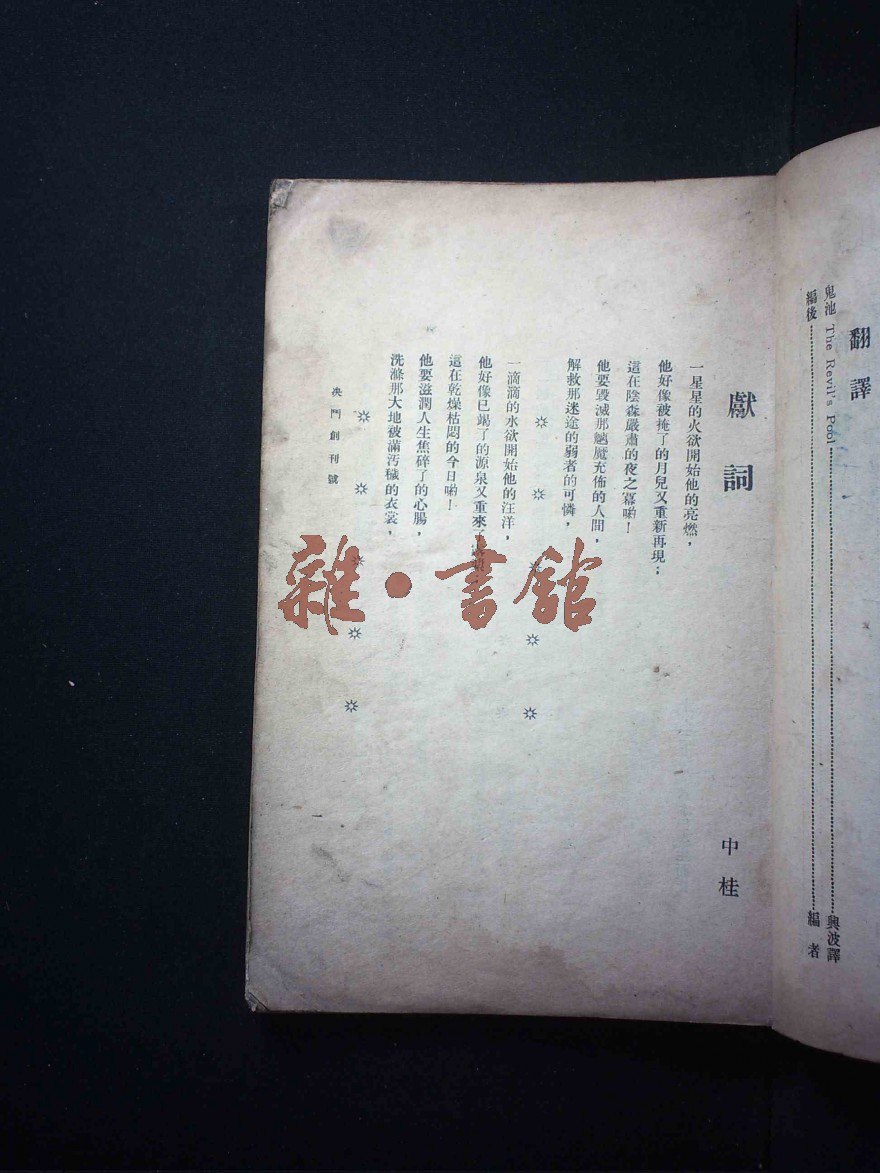 翻譯
鬼池 The Revil's Pool 興波譯
編後 編者
獻詞
中桂
一星星的火欲開始他的亮燃，
他好像被掩了的月兒又重新再現；
這在陰森嚴肅的夜之幕喲！
他要毀滅那魑魔充佈的人間，
解救那迷途的弱者的可憐，
一滴滴的水欲開始他的汪洋，
他好像已竭了的源泉又重來了
這在乾燥枯悶的今日喲！
他要滋潤人生焦碎了的心腸，
洗滌那大地被滿汚穢的衣裳，
決鬥創刊號
一
雜·書館